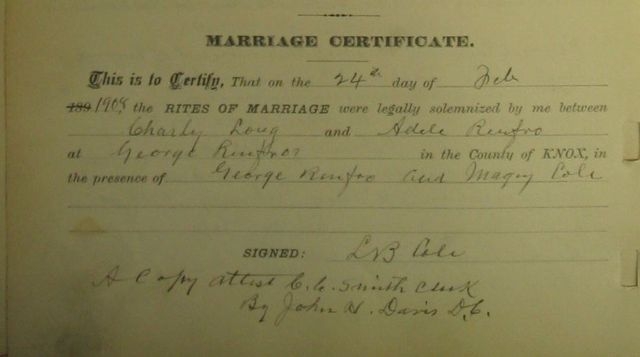 MARRIAGE CERTIFICATE.
This is to Certify, That on the 24th day of Feb
189 1908 the RITES OF MARRIAGE were legally solemnized by me between
Charly Long and Adele Renfro
at George Renfros in the County of KNOX, in
the presence of George Renfro and Magey Cole
SIGNED: LB Cole
A Copy attest C. C. Smith Clerk
By John H. Davis D.C.